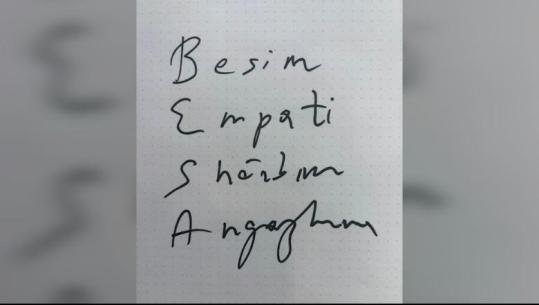 Besim
Empati
Shërbim
Angazhim